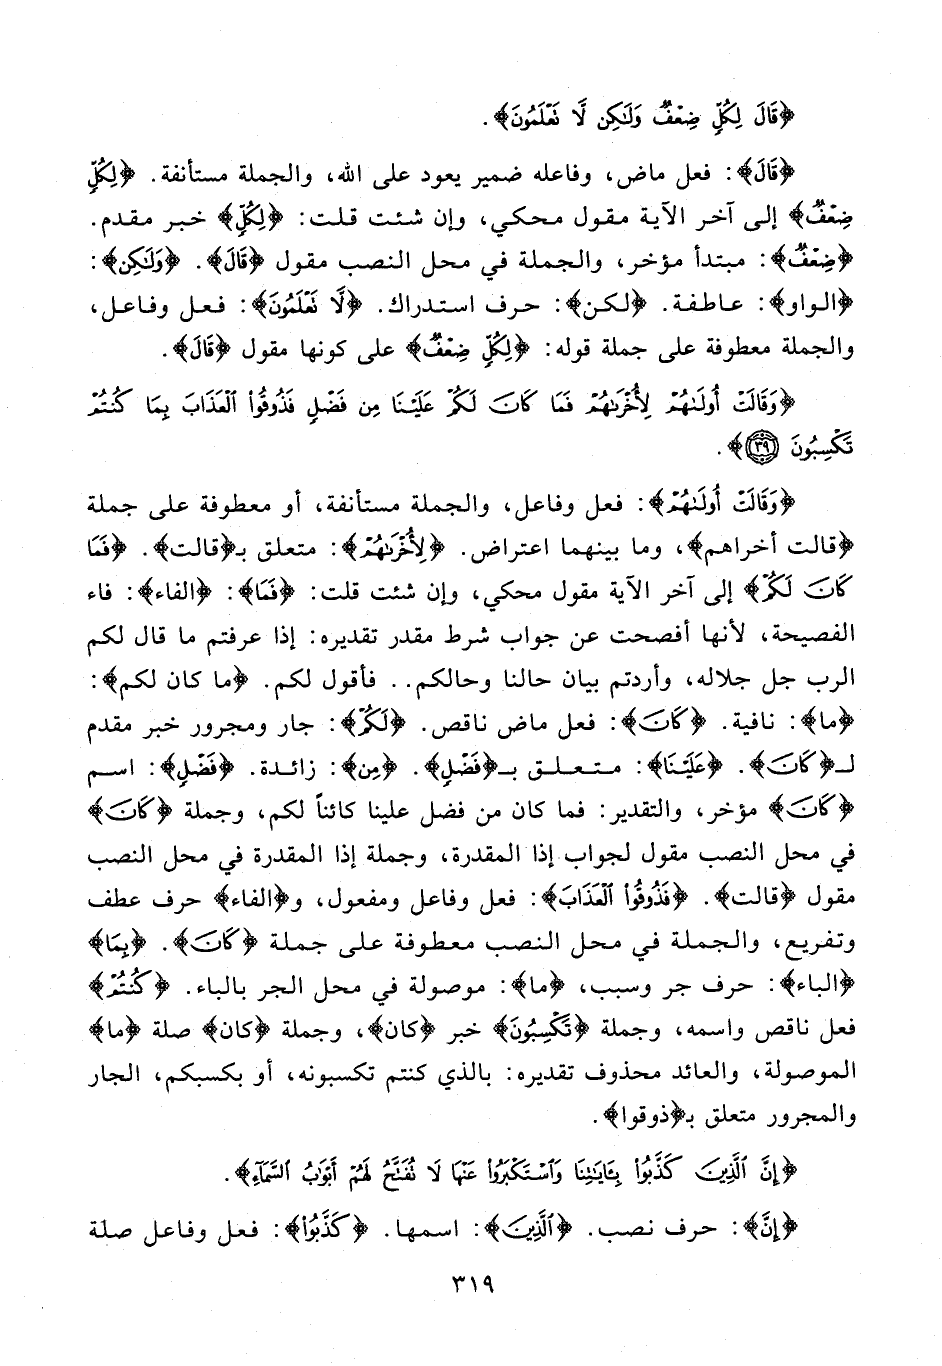 ﴿قَالَ لِكُلٍّ ضِعْفٌ وَلَٰكِن لَّا نَعْلَمُونَ﴾.
﴿قَالَ﴾: فعل ماض، وفاعله ضمير يعود على الله، والجملة مستأنفة. ﴿لِكُلٍّ
ضِعْفٌ﴾ إلى آخر الآية مقول محكي، وإن شئت قلت: ﴿لِكُلٍّ﴾ خبر مقدم.
﴿ضِعْفٌ﴾: مبتدأ مؤخر، والجملة في محل النصب مقول ﴿قَالَ﴾. ﴿وَلَٰكِن﴾:
﴿الواو﴾: عاطفة. ﴿لكن﴾: حرف استدراك. ﴿لَّا نَعْلَمُونَ﴾: فعل وفاعل،
والجملة معطوفة على جملة قوله: ﴿لِكُلٍّ ضِعْفٌ﴾ على كونها مقول ﴿قَالَ﴾.
﴿وَقَالَتْ أُولَىٰهُمْ لِأُخْرَىٰهُمْ فَمَا كَانَ لَكُمْ عَلَيْنَا مِن فَضْلٍ فَذُوقُوا۟ ٱلْعَذَابَ بِمَا كُنتُمْ
تَكْسِبُونَ ٣٩﴾.
﴿وَقَالَتْ أُولَىٰهُمْ﴾: فعل وفاعل، والجملة مستأنفة، أو معطوفة على جملة
﴿قالت أخراهم﴾، وما بينهما اعتراض. ﴿لِأُخْرَىٰهُمْ﴾: متعلق بـ﴿قالت﴾. ﴿فَمَا
كَانَ لَكُمْ﴾ إلى آخر الآية مقول محكي، وإن شئت قلت: ﴿فَمَا﴾: ﴿الفاء﴾: فاء
الفصيحة، لأنها أفصحت عن جواب شرط مقدر تقديره: إذا عرفتم ما قال لكم
الرب جل جلاله، وأردتم بيان حالنا وحالكم.. فأقول لكم. ﴿ما كان لكم﴾:
﴿ما﴾: نافية. ﴿كَانَ﴾: فعل ماض ناقص. ﴿لَكُمْ﴾: جار ومجرور خبر مقدم
لـ﴿كَانَ﴾. ﴿عَلَيْنَا﴾: متعلق بـ﴿فَضْلٍ﴾. ﴿مِن﴾: زائدة. ﴿فَضْلٍ﴾: اسم
﴿كَانَ﴾ مؤخر، والتقدير: فما كان من فضل علينا كائناً لكم، وجملة ﴿كَانَ﴾
في محل النصب مقول لجواب إذا المقدرة، وجملة إذا المقدرة في محل النصب
مقول ﴿قالت﴾. ﴿فَذُوقُوا۟ ٱلْعَذَابَ﴾: فعل وفاعل ومفعول، و﴿الفاء﴾ حرف عطف
وتفريع، والجملة في محل النصب معطوفة على جملة ﴿كَانَ﴾. ﴿بِمَا﴾
﴿الباء﴾: حرف جر وسبب، ﴿ما﴾: موصولة في محل الجر بالباء. ﴿كُنتُمْ﴾
فعل ناقص واسمه، وجملة ﴿تَكْسِبُونَ﴾ خبر ﴿كان﴾، وجملة ﴿كان﴾ صلة ﴿ما﴾
الموصولة، والعائد محذوف تقديره: بالذي كنتم تكسبونه، أو بكسبكم، الجار
والمجرور متعلق بـ﴿ذوقوا﴾.
﴿إِنَّ ٱلَّذِينَ كَذَّبُوا۟ بِـَٔايَٰتِنَا وَٱسْتَكْبَرُوا۟ عَنْهَا لَا تُفَتَّحُ لَهُمْ أَبْوَٰبُ ٱلسَّمَآءِ﴾.
﴿إِنَّ﴾: حرف نصب. ﴿ٱلَّذِينَ﴾: اسمها. ﴿كَذَّبُوا۟﴾: فعل وفاعل صلة
٣١٩